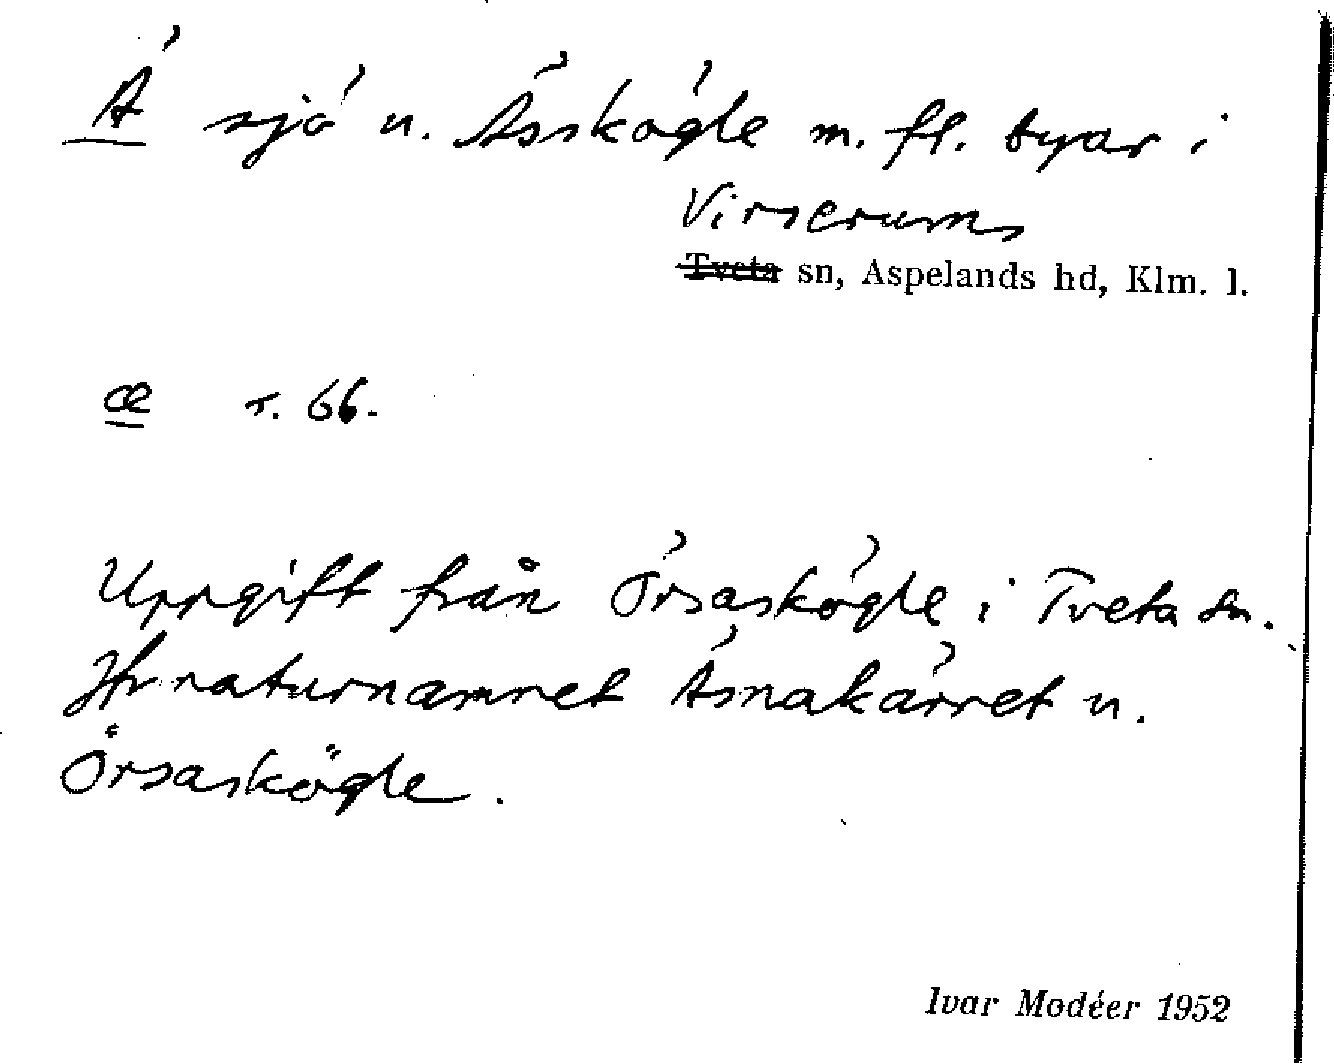 Ä sjö n. Ässkögle m. fl. byar i
Virserums
Tveta sn, Aspelands hd, Klm. l.
æ r. 66.
Uppgift från Örsaskögle i Tveta sn.
Jfr naturnamnet Äsnakärret n.
Örsaskögle.
Ivar Modéer 1952